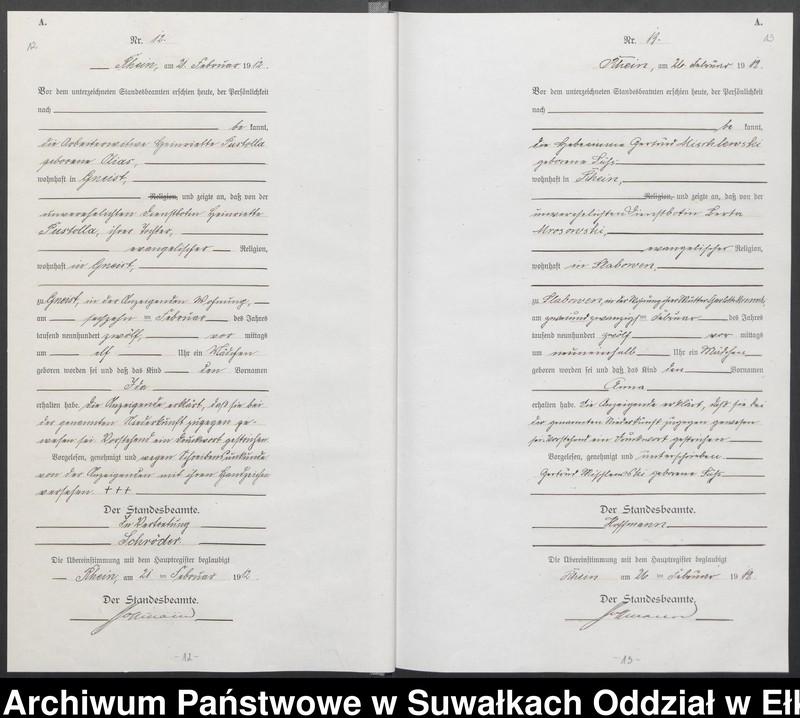 A.
12
Nr. 12.
Rhein, am 21. Februar 1912.
Vor dem unterzeichneten Standesbeamten erschien heute, der Persönlichkeit
nach
be kannt,
die Arbeiterwitwe Henriette Pustolla
geborene Alias,
wohnhaft in Gneist,
Religion, und zeigte an, daß von der
unverehelichten Dienstbotin Heinriette
Pustolla, ihrer Tochter,
evangelischer Religion,
wohnhaft in Gneist,
zu Gneist, in der Anzeigenden Wohnung,
am sechzehn = Februar des Jahres
tausend neunhundert zwölf, vor mittags
um elf Uhr ein Mädchen
geboren worden sei und daß das Kind den Vornamen
Ida
erhalten habe. Die Anzeigende erklärt, daß sie bei
der genannten Niederkunft zugegen ge-
wesen sei. Vorstehend ein Druckwort gestrichen.
Vorgelesen, genehmigt und wegen Schreibensunkunde
von der Anzeigenden mit ihren Handzeichen
versehen +++
Der Standesbeamte.
In Vertretung
Schröder.
Die Übereinstimmung mit dem Hauptregister beglaubigt
Rhein, am 21 = Februar 1912.
Der Standesbeamte.
- 12 -
A.
13
Nr.
Rhein, am 26. Februar 1912.
Vor dem unterzeichneten Standesbeamten erschien heute, der Persönlichkeit
nach
be kannt,
die Hebeamme Gertrud
geborene
wohnhaft in Rhein,
Religion, und zeigte an, daß von der
unverehelichten Dienstbotin Berta
Mrosowski,
evangelischer Religion,
wohnhaft in Slabowen,
zu Slabowen, in der Wohnung ihrer Mutter
am = Februar des Jahres
tausend neunhundert zwölf vor mittags
um neuneinhalb Uhr ein Mädchen
geboren worden sei und daß das Kind den Vornamen
Anna
erhalten habe. Die Anzeigende erklärt, daß sie bei
der genannten Niederkunft zugegen gewesen
sei. Vorstehend ein Druckwort gestrichen
Vorgelesen, genehmigt und unterschrieben
Gertrud geborene
Der Standesbeamte.
Hoffmann
Die Übereinstimmung mit dem Hauptregister beglaubigt
Rhein am 26 = Februar 1912.
Der Standesbeamte.
- 13 -
Archiwum Państwowe w Suwałkach Oddział w Ełk